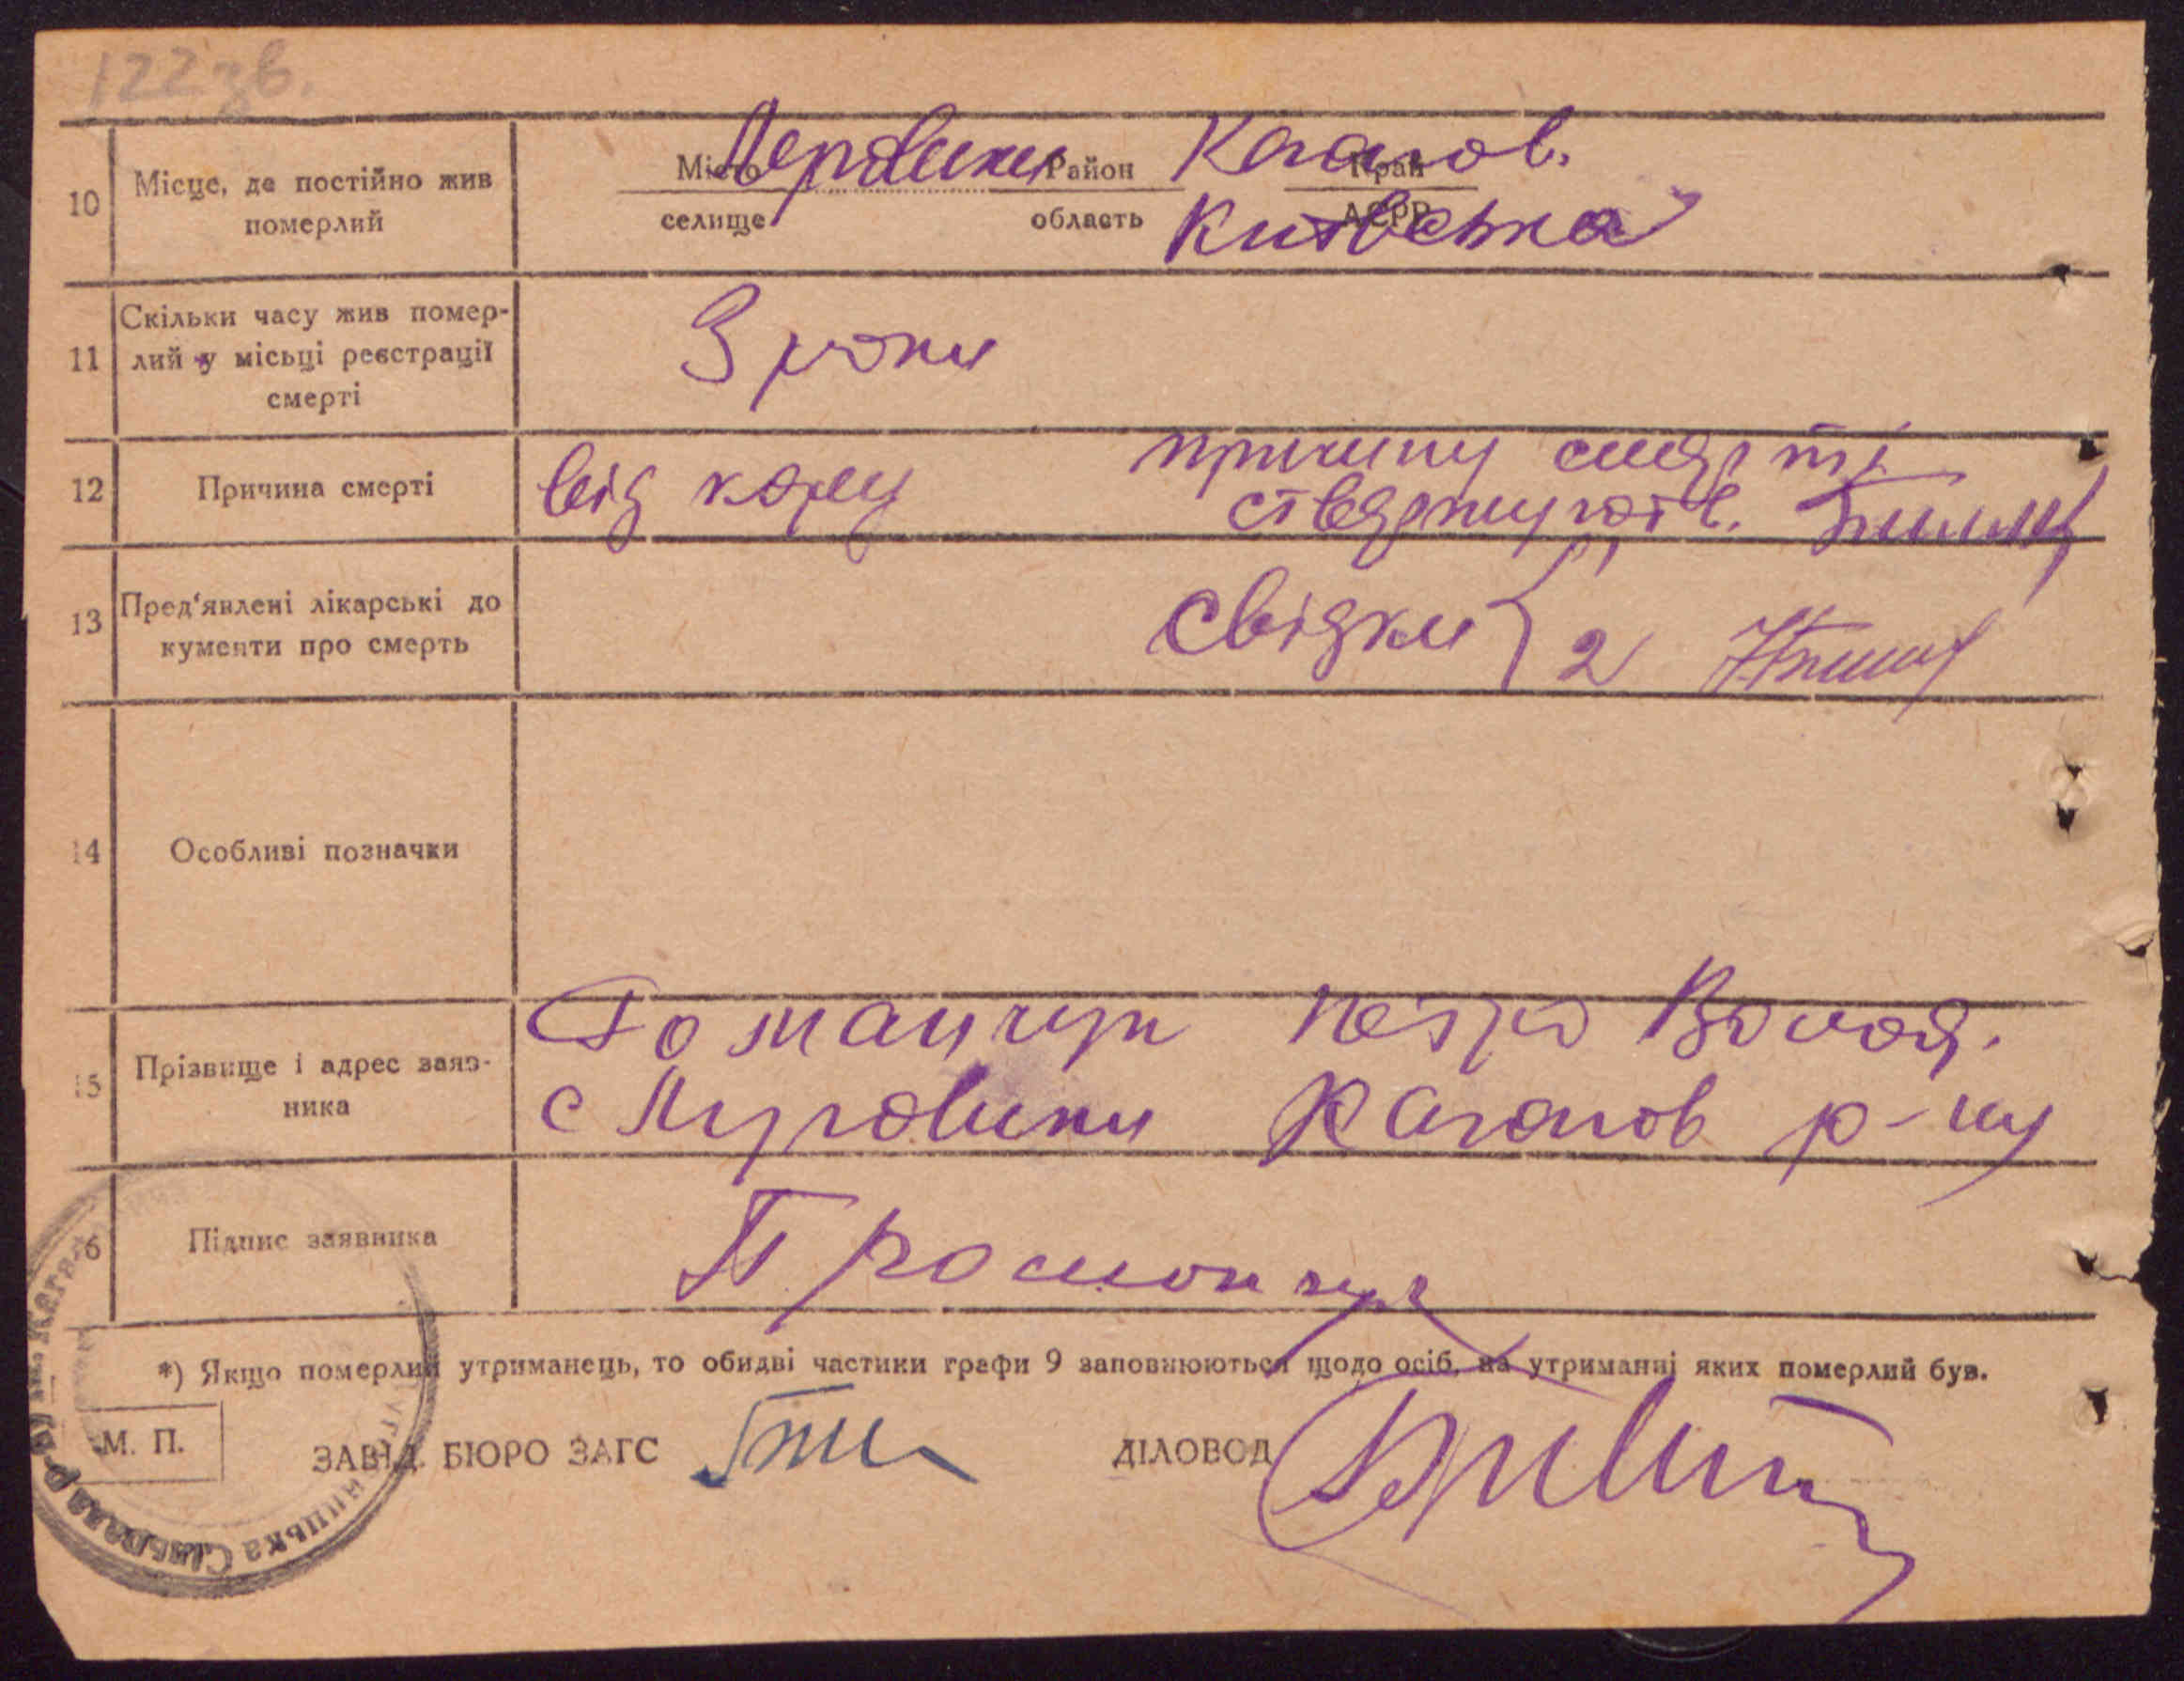 122 зв.
10
Місце, де постійно жив
померлий
Місто
селище
Район
область
Край
АСРР
Каганов.
Київська
11
Скільки часу жив помер-
лий у місьці реєстрації
смерті
3 роки
12
Причина смерті
від кору
причину смерті
стверджують.
13
Пред'явлені лікарські до
кументи про смерть
свідки 2
14
Особливі позначки
15
Прізвище і адрес заяв-
ника
Романчук Петро Волод.
с Муровики Каганов р-ну
16
Підпис заявника
П Романчук
*) Якщо померлий утриманець, то обидві частини графи 9 заповнюються щодо осіб, на утриманні яких померлий був.
М. П.
ЗАВІД. БЮРО ЗАГС
ДІЛОВОД